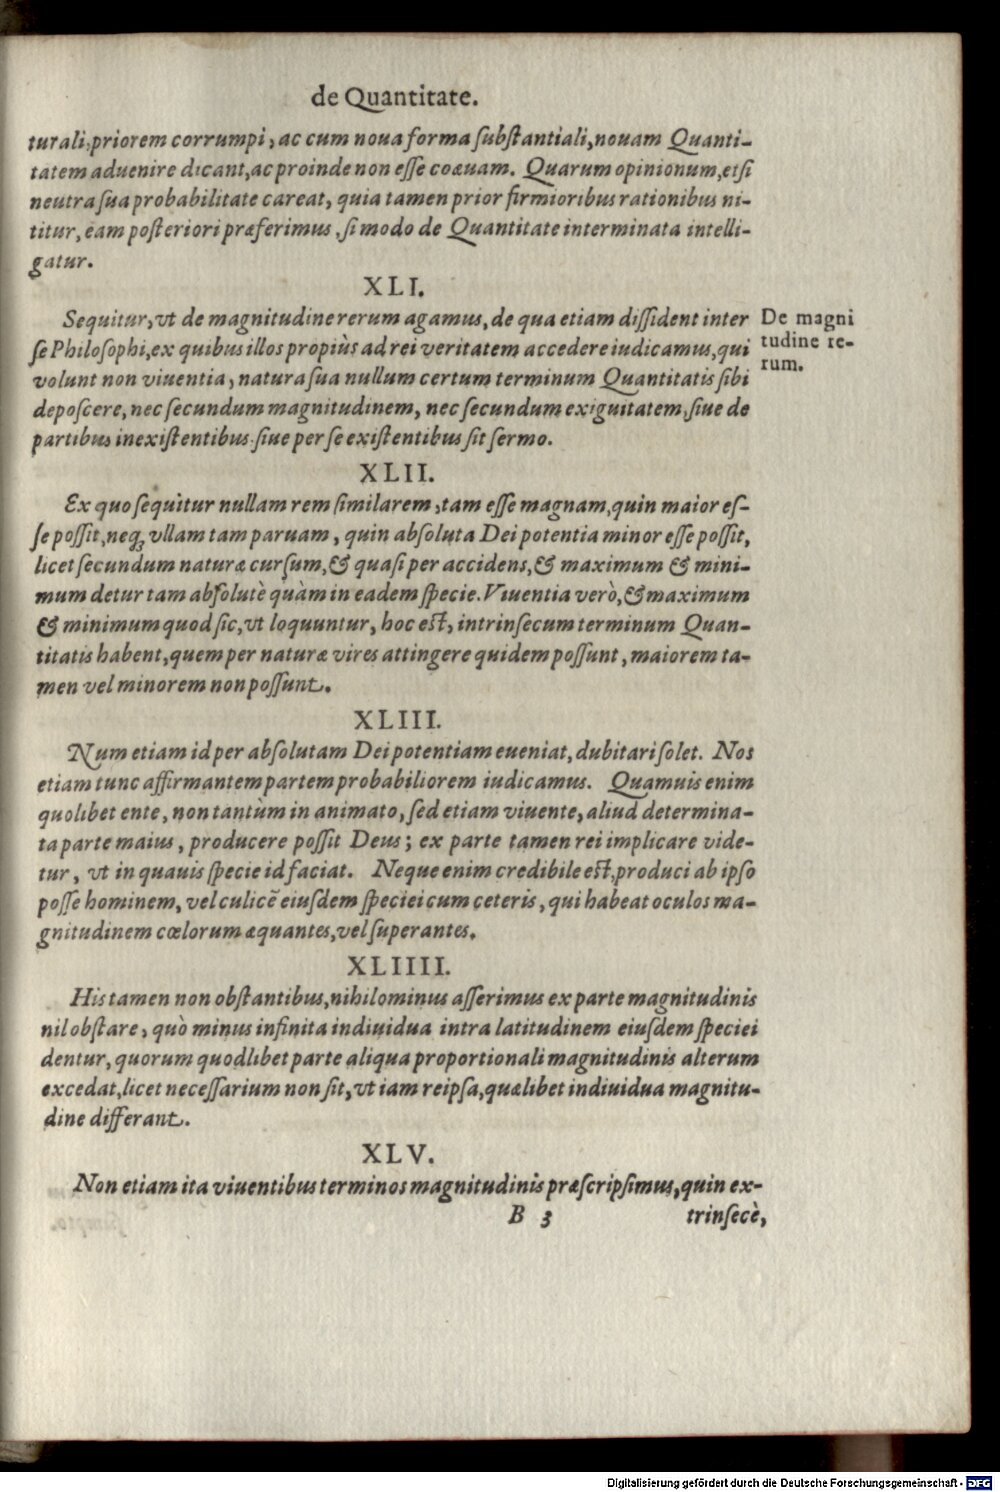 de Quantitate.
turali, priorem corrumpi, ac cum noua forma ſubſtantiali, nouam Quanti-
tatem aduenire dicant, ac proinde non eſſe coæuam. Quarum opinionum, etſi
neutra ſua probabilitate careat, quia tamen prior firmioribus rationibus ni-
titur, eam poſteriori præferimus, ſi modo de Quantitate interminata intelli-
gatur.
XLI.
Sequitur, vt de magnitudine rerum agamus, de qua etiam diſſident inter
ſe Philoſophi, ex quibus illos propiùs ad rei veritatem accedere iudicamus, qui
volunt non viuentia, natura ſua nullum certum terminum Quantitatis ſibi
depoſcere, nec ſecundum magnitudinem, nec ſecundum exiguitatem, ſiue de
partibus inexiſtentibus ſiue per ſe exiſtentibus ſit ſermo.
De magni
tudine re-
rum.
XLII.
Ex quo ſequitur nullam rem ſimilarem, tam eſſe magnam, quin maior eſ-
ſe poſſit, neq́; vllam tam paruam, quin abſoluta Dei potentia minor eſſe poſſit,
licet ſecundum naturæ curſum, & quaſi per accidens, & maximum & mini-
mum detur tam abſolutè quàm in eadem ſpecie. Viuentia verò, & maximum
& minimum quod ſic, vt loquuntur, hoc eſt, intrinſecum terminum Quan-
titatis habent, quem per naturæ vires attingere quidem poſſunt, maiorem ta-
men vel minorem non poſſunt.
XLIII.
Num etiam id per abſolutam Dei potentiam eueniat, dubitari ſolet. Nos
etiam tunc affirmantem partem probabiliorem iudicamus. Quamuis enim
quolibet ente, non tantùm in animato, ſed etiam viuente, aliud determina-
ta parte maius, producere poſſit Deus; ex parte tamen rei implicare vide-
tur, vt in quauis ſpecie id faciat. Neque enim credibile eſt, produci ab ipſo
poſſe hominem, vel culicē eiuſdem ſpeciei cum ceteris, qui habeat oculos ma-
gnitudinem cœlorum æquantes, vel ſuperantes.
XLIIII.
His tamen non obſtantibus, nihilominus aſſerimus ex parte magnitudinis
nil obſtare, quò minus infinita indiuidua intra latitudinem eiuſdem ſpeciei
dentur, quorum quodlibet parte aliqua proportionali magnitudinis alterum
excedat, licet neceſſarium non ſit, vt iam reipſa, quælibet indiuidua magnitu-
dine differant.
XLV.
Non etiam ita viuentibus terminos magnitudinis præſcripſimus, quin ex-
B 3 trinſecè,
Digitalisierung gefördert durch die Deutsche Forschungsgemeinschaft - DFG